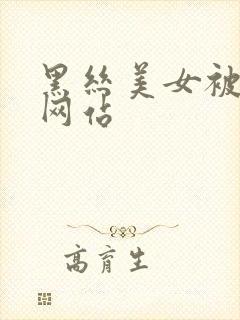 黑丝美女被
网站
高育生